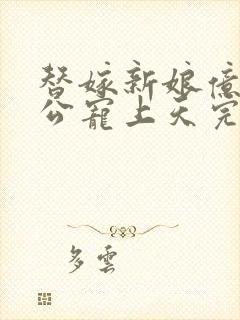 替嫁新娘億
公寵上天完
多雲